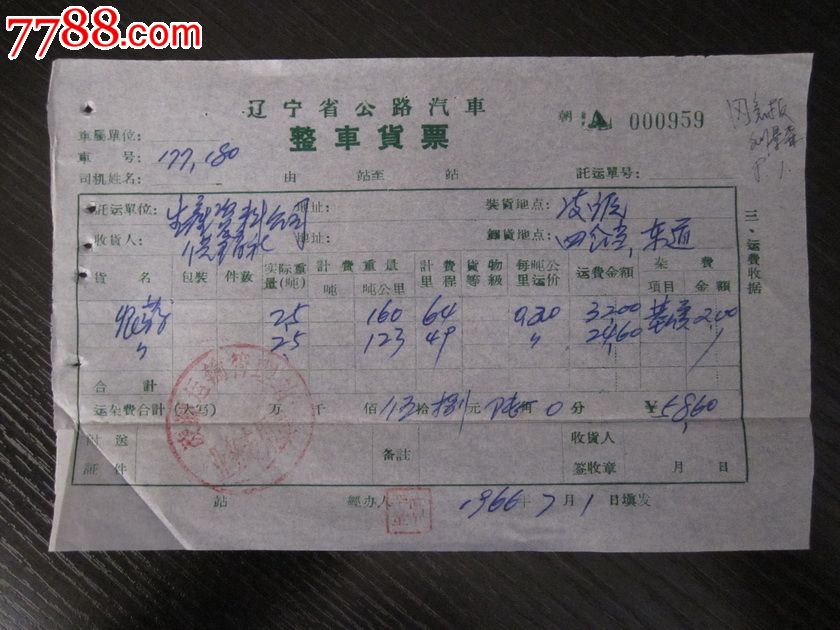 7788.com
辽宁省公路汽車
整車貨票
朝 000959
車屬單位:
車 号: 177,180
司机姓名: 由 站至 站 託运單号:
託运單位: 生產資料公司 地址: 裝貨地点: 凌源
收货人: 地址: 卸貨地点: 四合当, 东道
三、运費收据
貨 名 包裝 件数 实际重量(吨) 計費重量 吨 吨公里 計費里程 貨物等級 每吨公里运价 运費金額 杂費 項目 金額
2.5 160 64 0.200 32.00 2.00
〃 2.5 123 49 〃 24.60
合 計
运杂費合計(大写) 万 千 佰 伍拾捌元陆角0分 ¥58.60
附送証件 备註 收貨人签收章 月 日
站 經办人 1966年7月1日填发